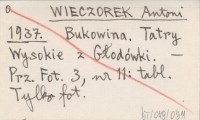 WIECZOREK Antoni
1937. Bukowina. Tatry
Wysokie z Głodówki. —
Prz. Fot. 3, nr 11: tabl.
Tylko fot.